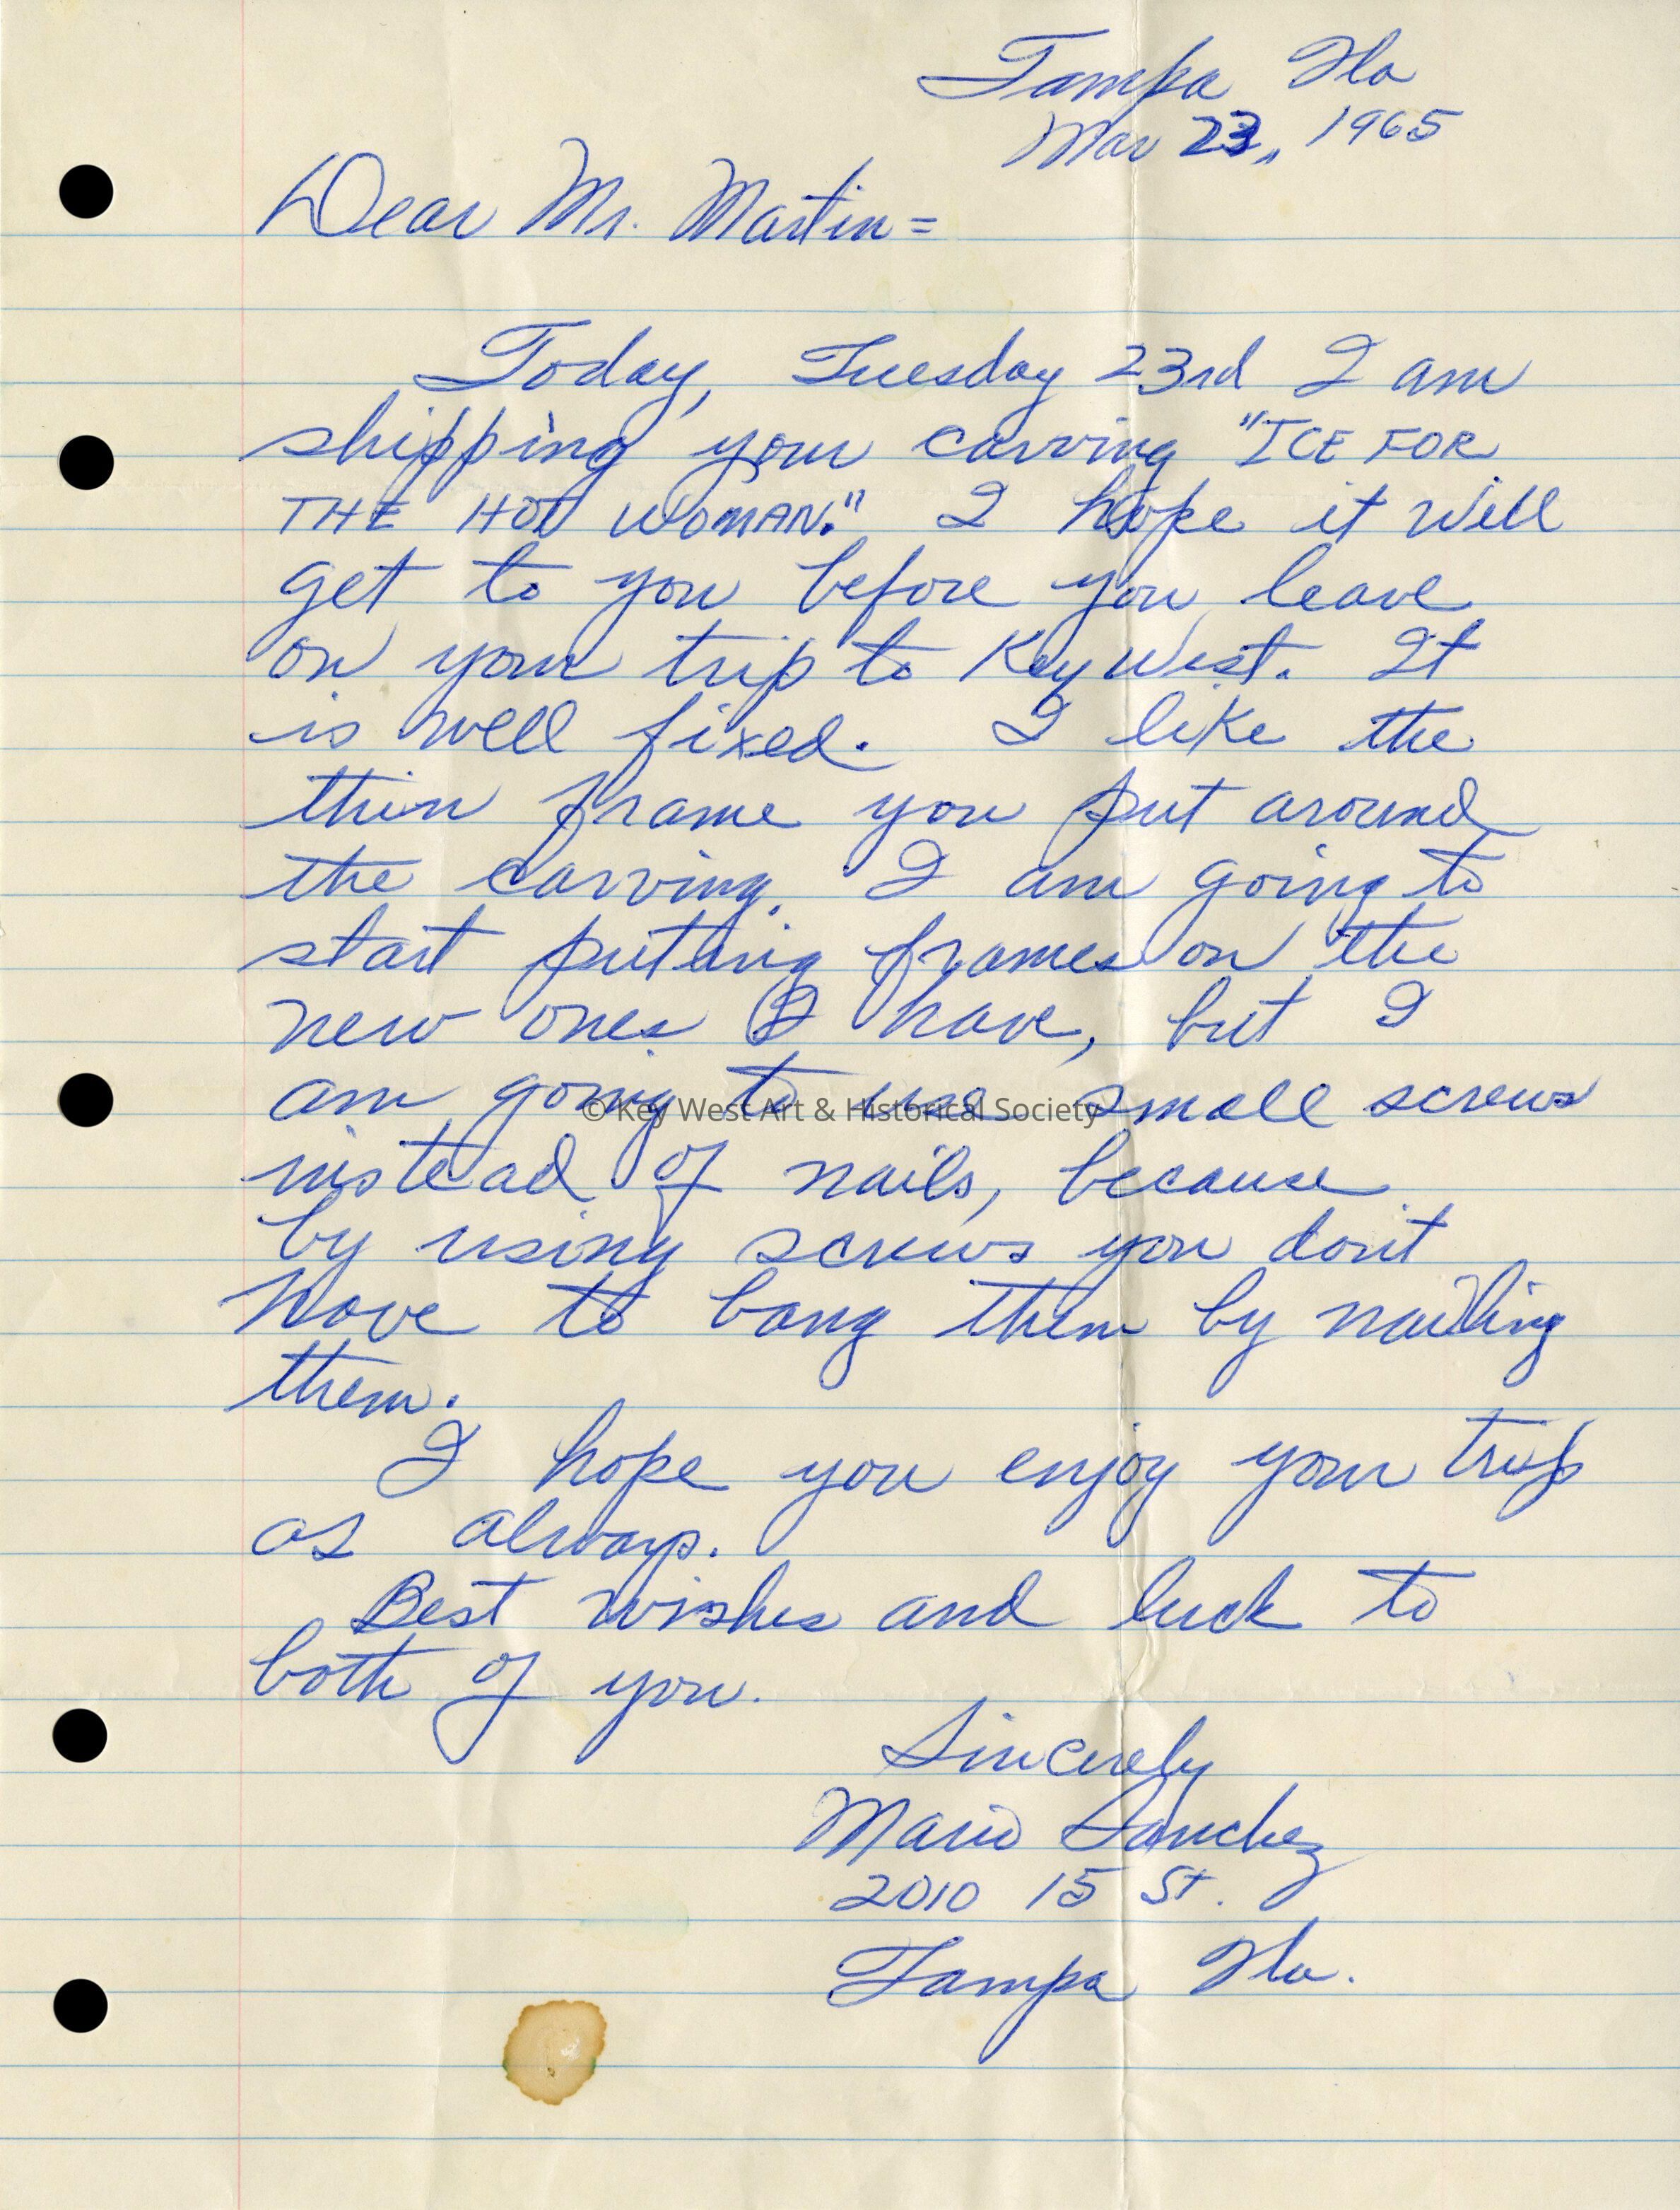 Tampa Fla
Mar 23, 1965
Dear Mr. Martin=
Today, Tuesday 23rd I am
shipping your carving "ICE FOR
THE HOT WOMAN." I hope it will
get to you before you leave
on your trip to Key West. It
is well fixed. I like the
thin frame you put around
the carving. I am going to
start putting frames on the
new ones I have, but I
am going to use small screws
© Key West Art & Historical Society
instead of nails, because
by using screws you don't
have to bang them by nailing
them.
I hope you enjoy your trip
as always.
Best wishes and luck to
both of you.
Sincerely
Mario Sanchez
2010 15 St.
Tampa Fla.